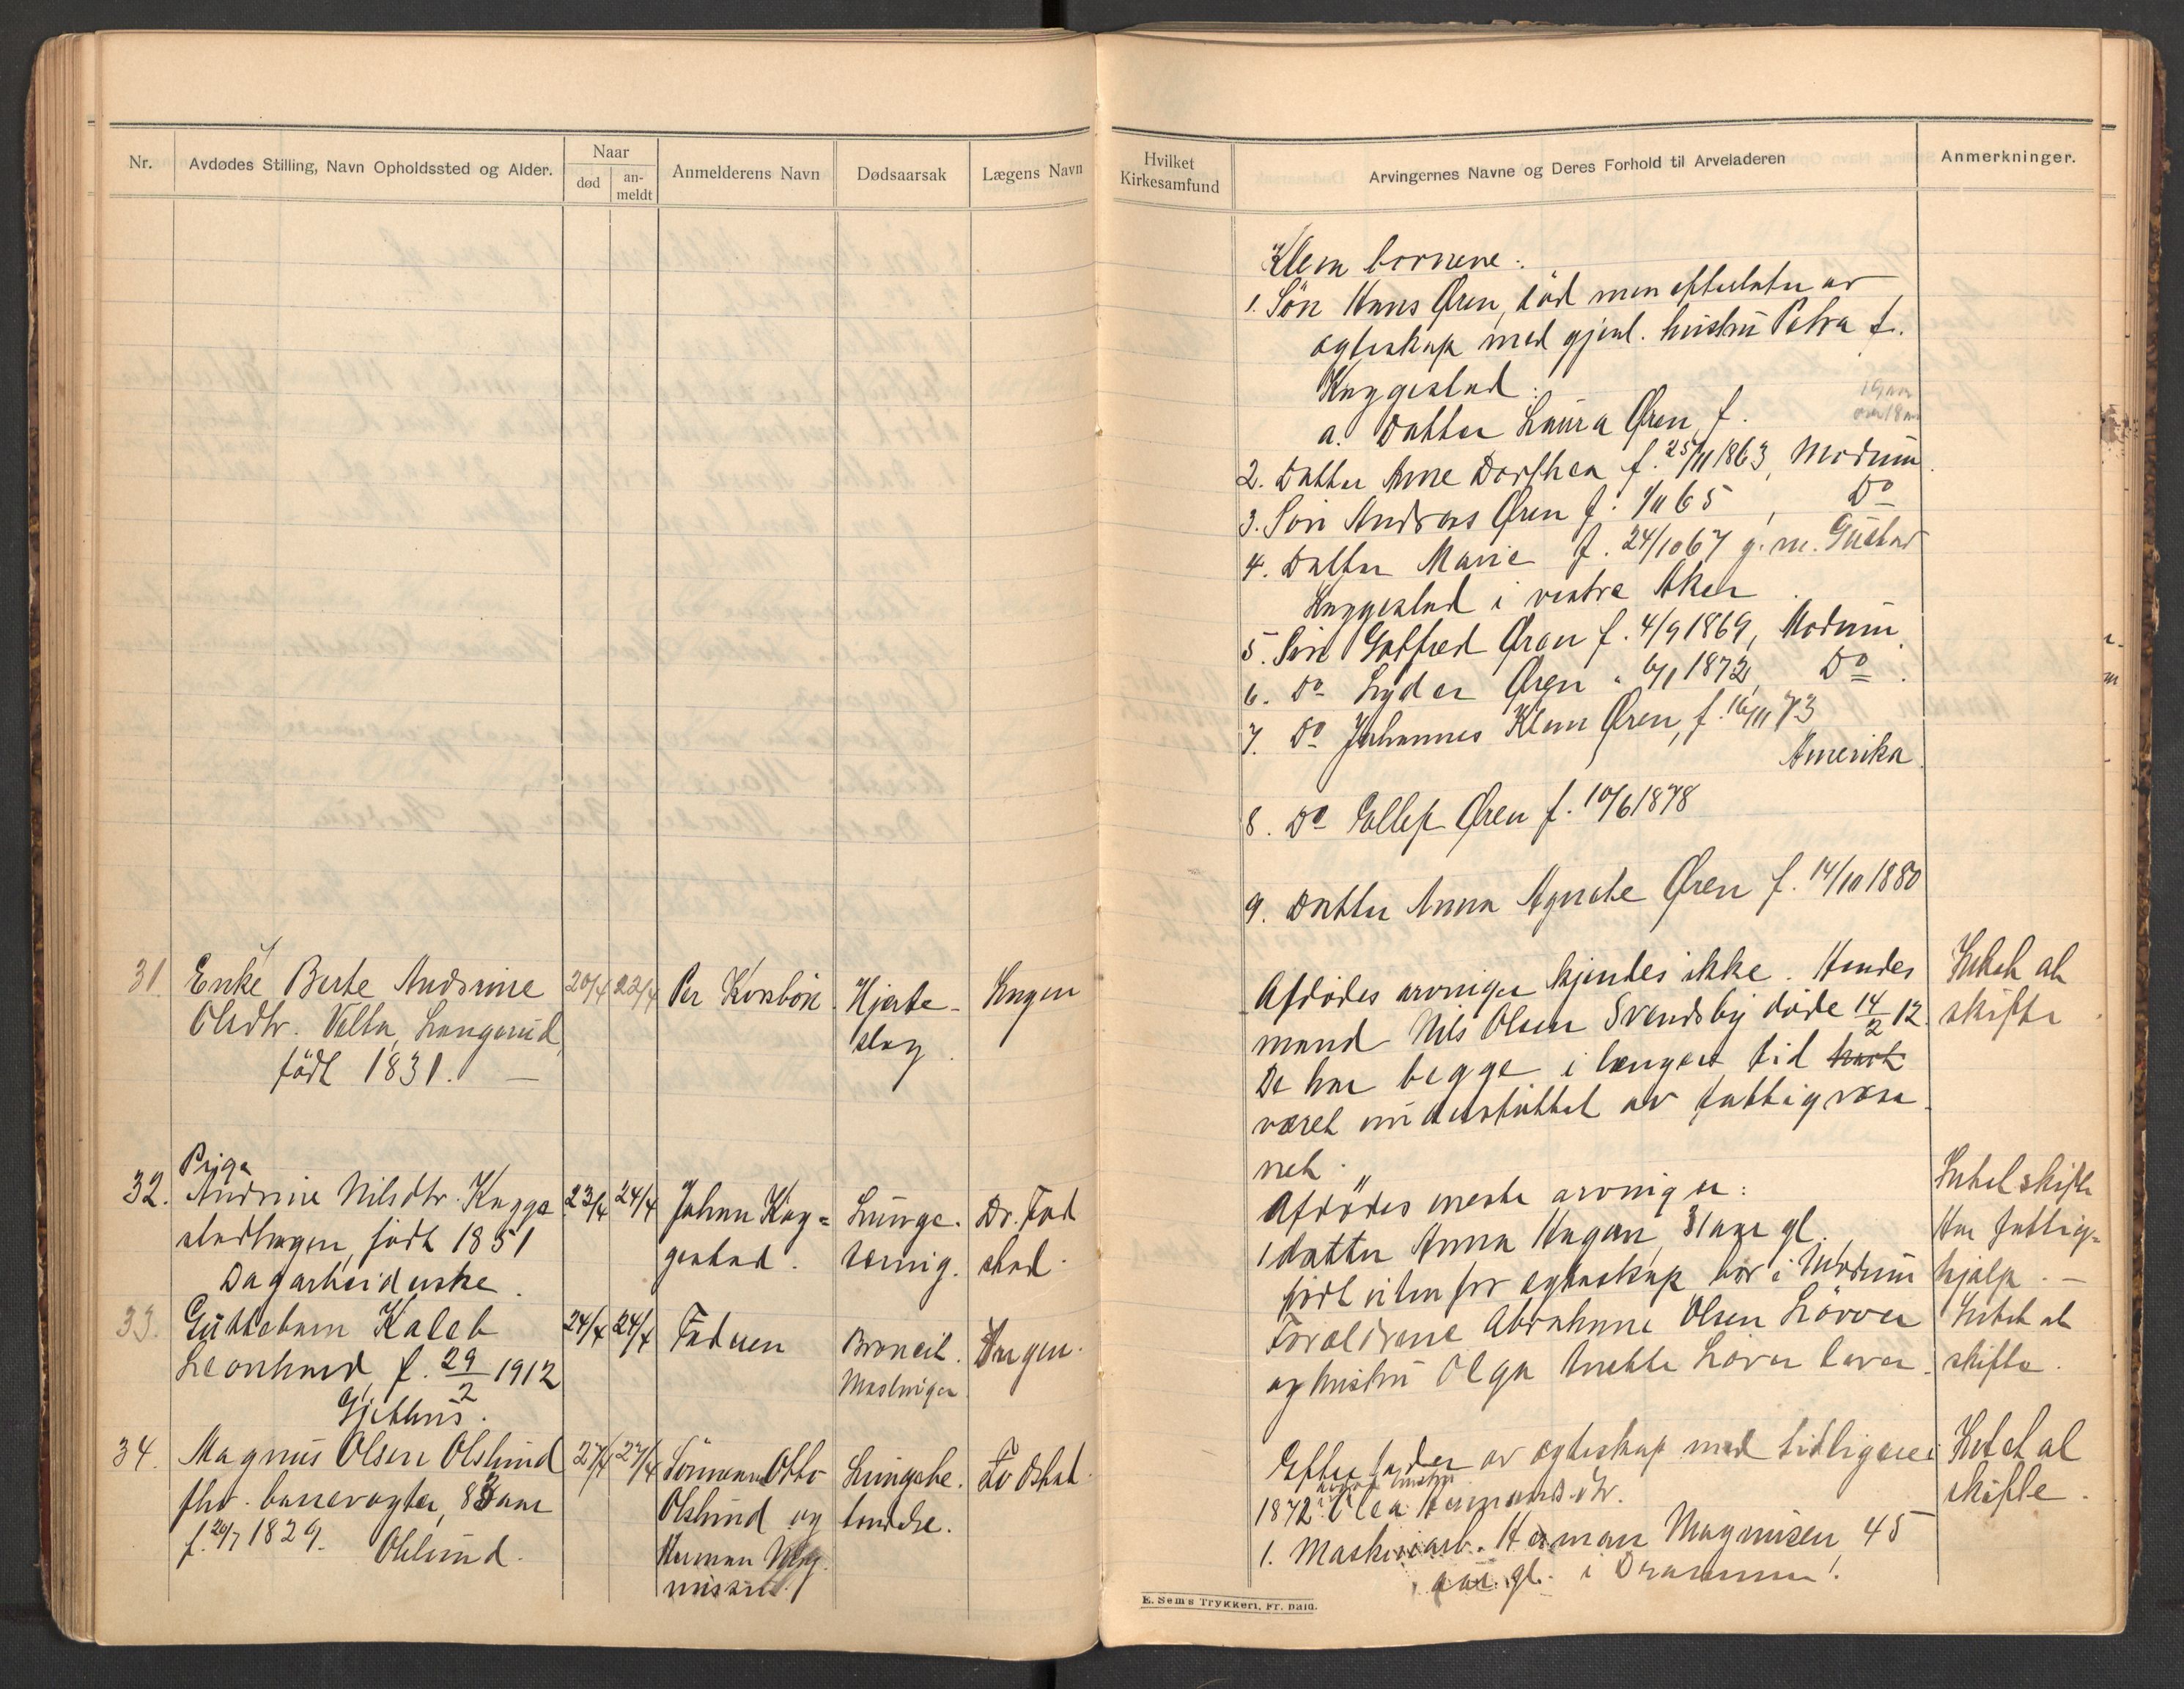 Nr.
Avdødes Stilling, Navn Opholdssted og Alder.
Naar
død
an-
meldt
Anmelderens Navn
Dødsaarsak
Lægens Navn
31.
Enke Berte Andrine
Olsdtr. Vella, Langerud,
född 1831. —
20/4
22/4
Per Korsbön
Hjerte-
slag.
Hagen
32.
Pige
Andrine Nilsdtr. Kagge
stadhagen, född 1851
Dagarbeiderske.
23/4
24/4
Johan Kag=
gestad.
Lunge.
tæring.
Dr. Fod
stad.
33.
Guttebarn Kaleb
Leonhard, f. 29/2 1912
Gjethus.
24/4
24/4
Faderen
Broncit.
Meslinger
Hagen.
34.
Magnus Olsen Olslund
fhv. banevogter, 83 aar
f. 20/7 1829. Olslund.
27/4
27/4
Sönnerne Otto
Olslund og
Herman Mag.
nussen.
Lungebe.
tændelse.
Fodstad.
Hvilket
Kirkesamfund
Arvingernes Navne og Deres Forhold til Arveladeren
Anmerkninger.
Klem børnene:
1. Sön Hans Øren, död men efterlater av
egteskap med gjenl. hustru Petra f.
Kaggestad:
a. Datter Laura Øren, f. 19 aar
over 18 aar
2. Datter Anne Dorthea f. 25/11 1863, Modum.
3. Sön Andreas Øren f. 1/11 65, Do
4. Datter Marie f. 24/10 67 g. m. Gustav
Kaggestad i vestre Aker.
5. Sön Gotfred Øren f. 4/9 1869, Modum.
6. Do Lyder Øren " 6/1 1872, Do.
7. Do Johannes Klem Øren, f. 16/11 73
Amerika.
8. Do Ellef Øren f. 10/6 1878
9. Datter Anna Agnethe Øren f. 14/10 1880
Afdödes arvinger kjendes ikke. Hendes
mand Nils Olsen Svendsby döde 14/2 12.
De har begge i længere tid hart
været understöttet av fattigvæse
net.
Intet at
skifte.
Afdödes neste arvinger:
1 datter Anna Hagen, 31 aar gl.
födt utenfor egteskap bor i Modum
Intet skifte
Har fattig=
hjælp. —
Forældrene Abraham Olsen Lövør
og hustru Olga Anette Lövør lever.
Intet at
skifte.
Efterlader av egteskap med tidligere i
1872 avdöde hustru Olea Hermansdtr.
1. Maskinarb. Herman Magnusen 45
aar gl. i Drammen.
Intet at
skifte.
E. Sem's Trykkeri, Fr. hald.